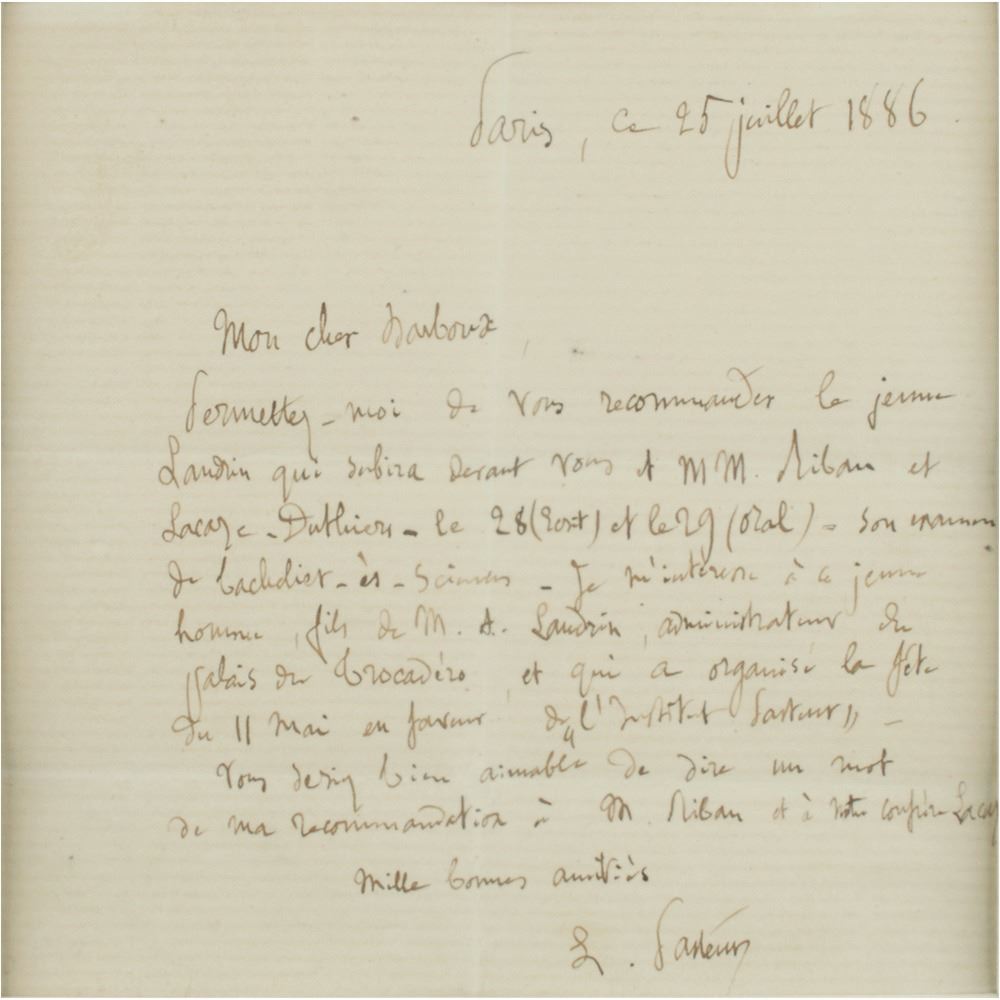 Paris, ce 25 juillet 1886.
Mon cher Darboux,
Permettez-moi de vous recommander le jeune
Landrin qui subira devant vous et MM. Riban et
Lacaze-Duthiers - le 28 (écrit) et le 29 (oral) - son examen
de bachelier-ès-sciences - Je m'intéresse à ce jeune
homme, fils de M. A. Landrin, administrateur du
palais du Trocadéro, et qui a organisé la fête
du 11 Mai en faveur de "l'Institut Pasteur" -
Vous seriez bien aimable de dire un mot
de ma recommandation à M. Riban et à notre confrère Lacaz
Mille bonnes amitiés
L. Pasteur